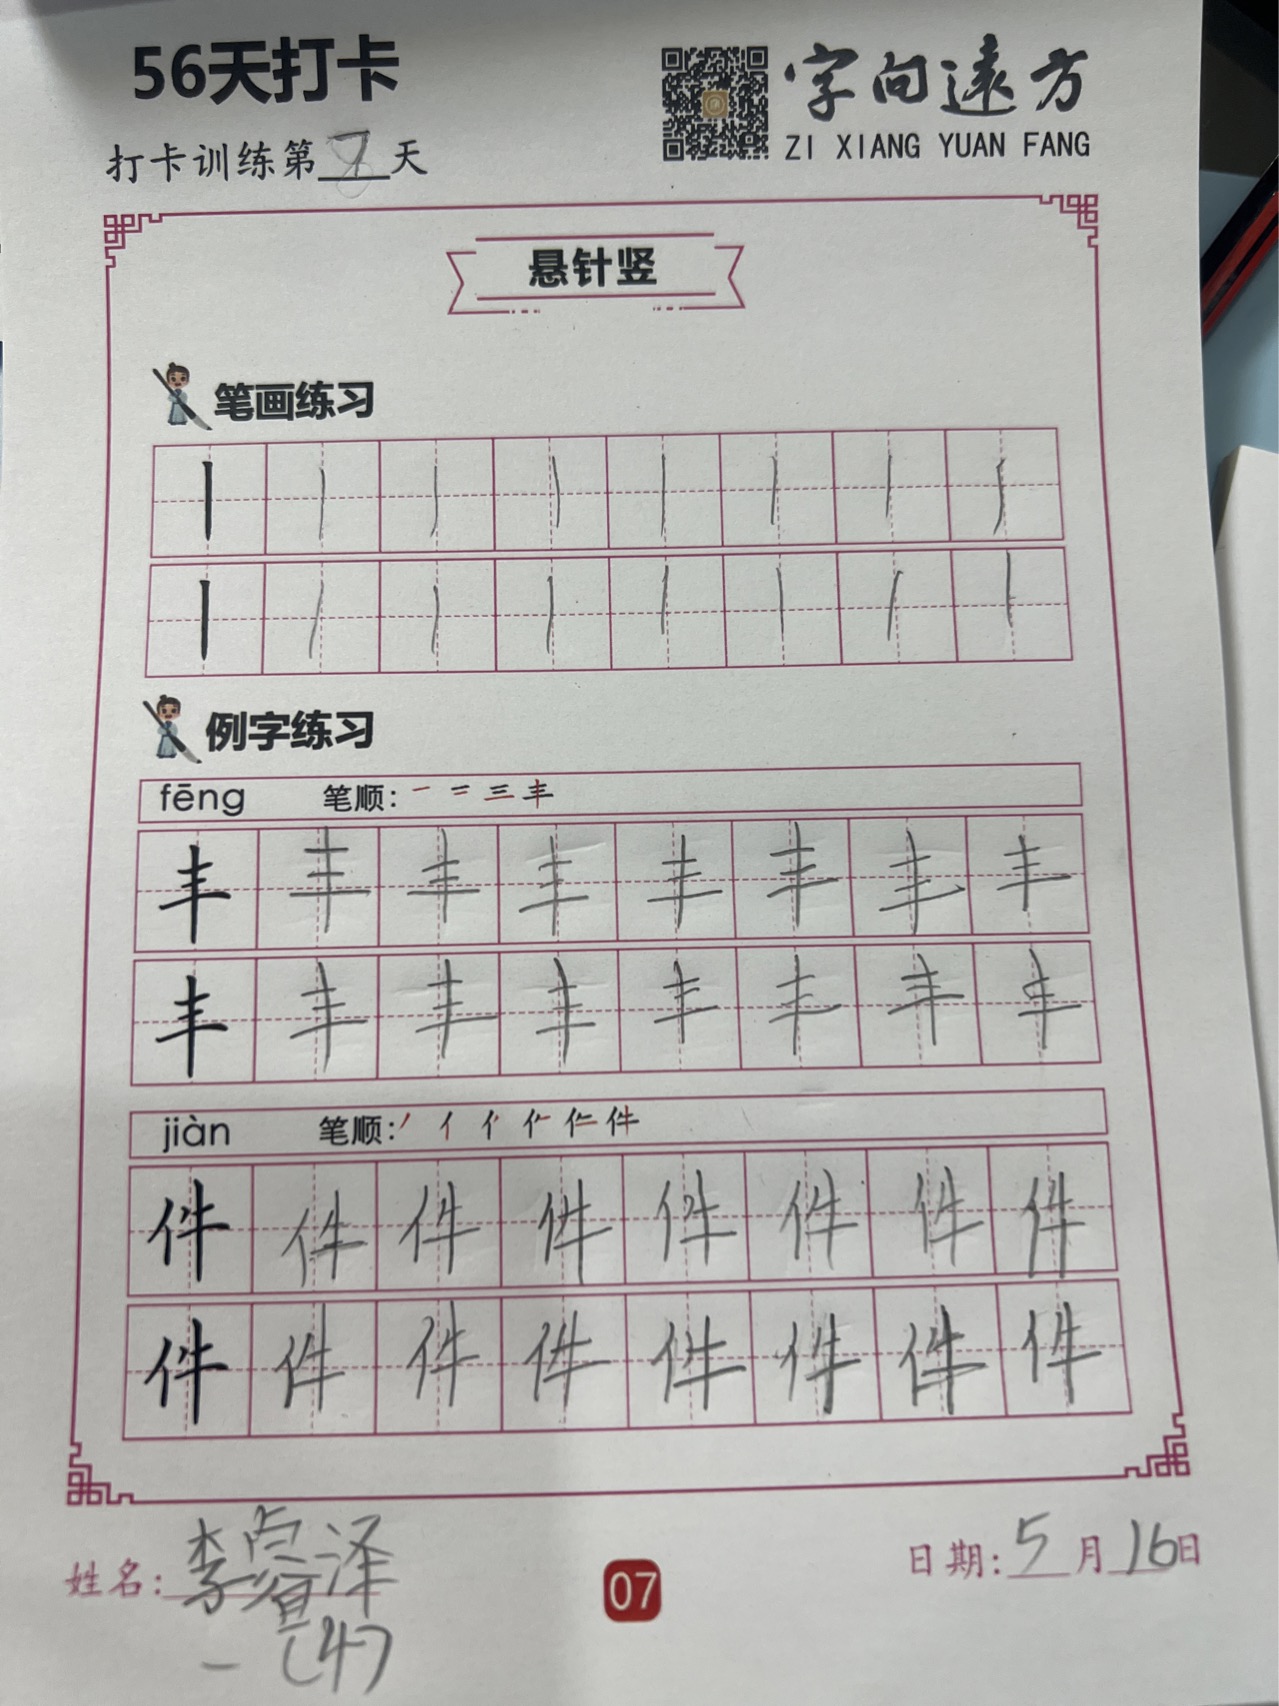 56天打卡
字向遠方
ZI XIANG YUAN FANG
打卡训练第7天
悬针竖
笔画练习
丨 丨 丨 丨 丨 丨 丨 丨
丨 丨 丨 丨 丨 丨 丨 丨
例字练习
fēng 笔顺: 一 二 三 丰
丰 丰 丰 丰 丰 丰 丰 丰
丰 丰 丰 丰 丰 丰 丰 丰
jiàn 笔顺:
件 件 件 件 件 件 件 件
件 件 件 件 件 件 件 件
姓名: 李睿泽
一(4)
07
日期: 5月16日